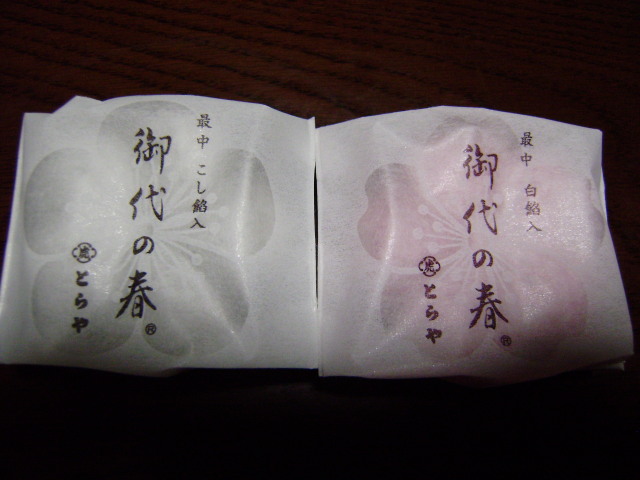 最中 こし餡入
御代の春®
虎 とらや
最中 白餡入
御代の春®
虎 とらや